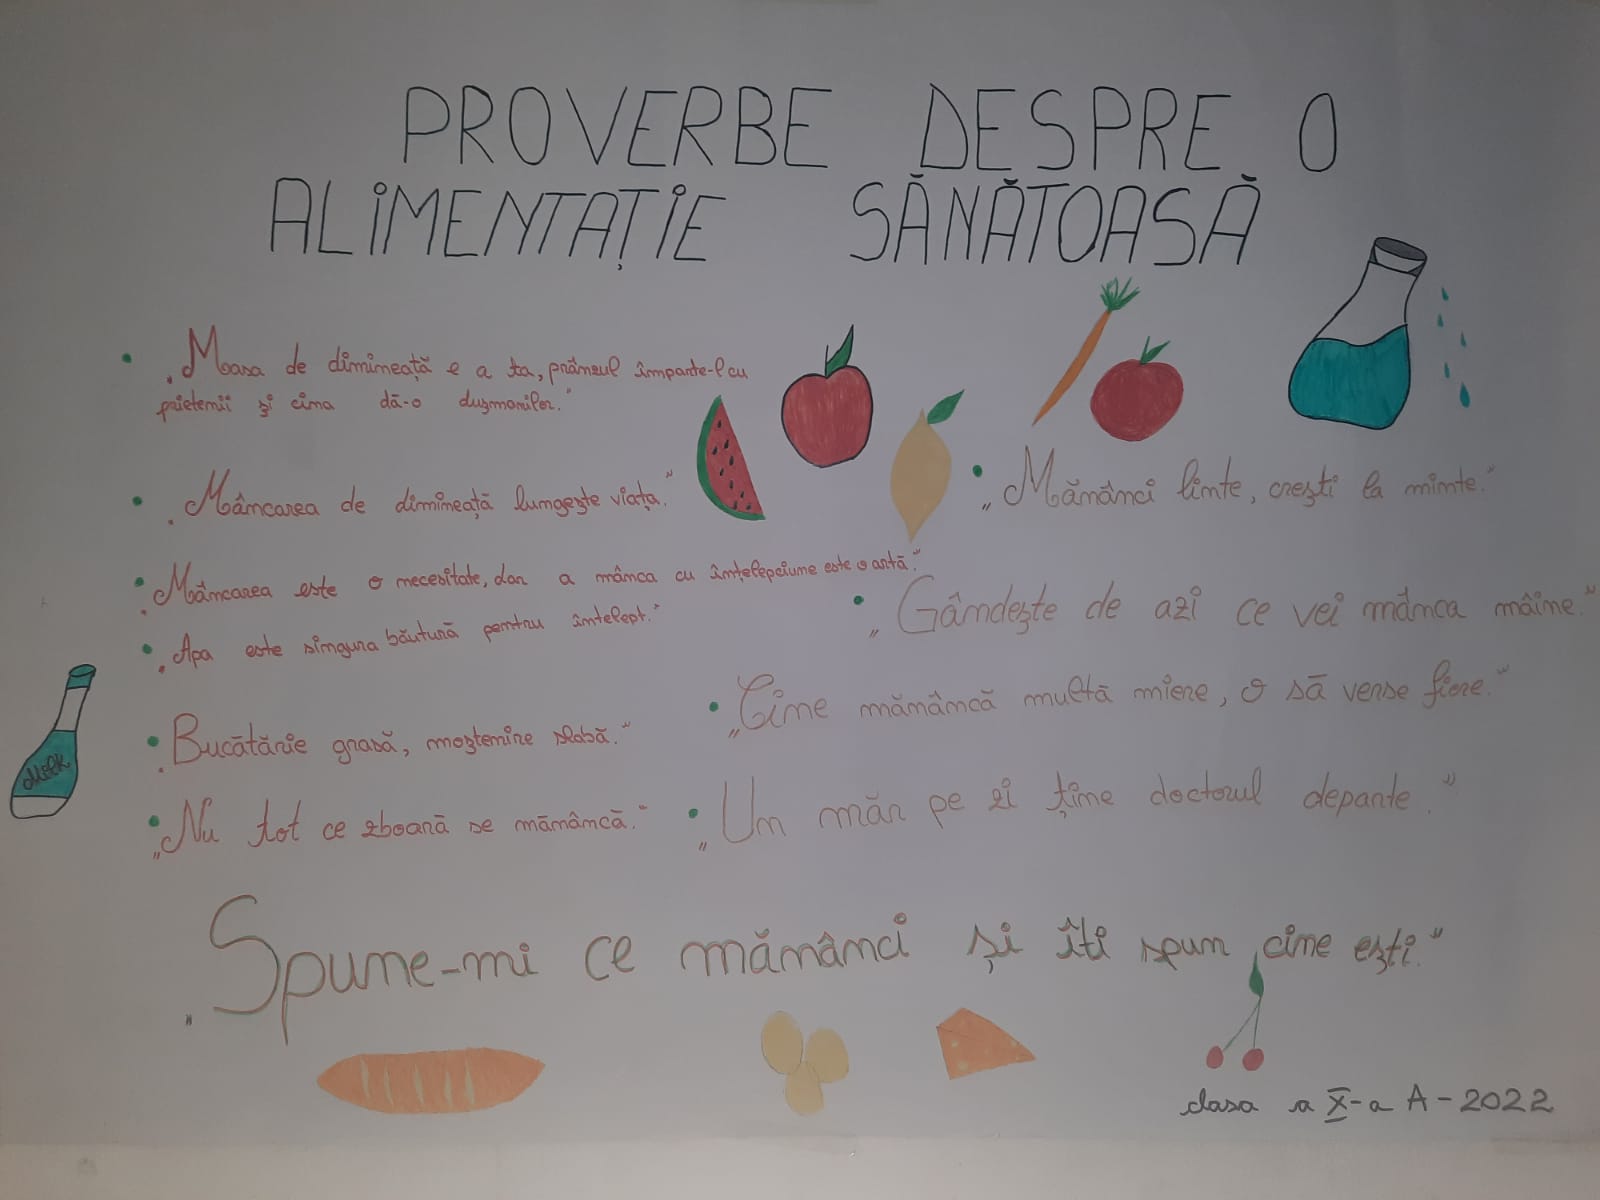 PROVERBE DESPRE O
ALIMENTAȚIE SĂNĂTOASĂ
• „Masa de dimineață e a ta, prânzul împarte-l cu
prietenii și cina dă-o dușmanilor."
• „Mâncarea de dimineață lungește viața."
• „Mâncarea este o necesitate, dar a mânca cu înțelepciune este o artă."
• „Apa este singura băutură pentru înțelept."
• „Bucătărie grasă, moștenire slabă."
• „Nu tot ce zboară se mănâncă."
• „Mănânci linte, crești la minte."
• „Gândește de azi ce vei mânca mâine."
• „Cine mănâncă multă miere, o să verse fiere."
• „Un măr pe zi ține doctorul departe."
„Spune-mi ce mănânci și îti spun cine ești."
Milk
clasa a X-a A - 2022